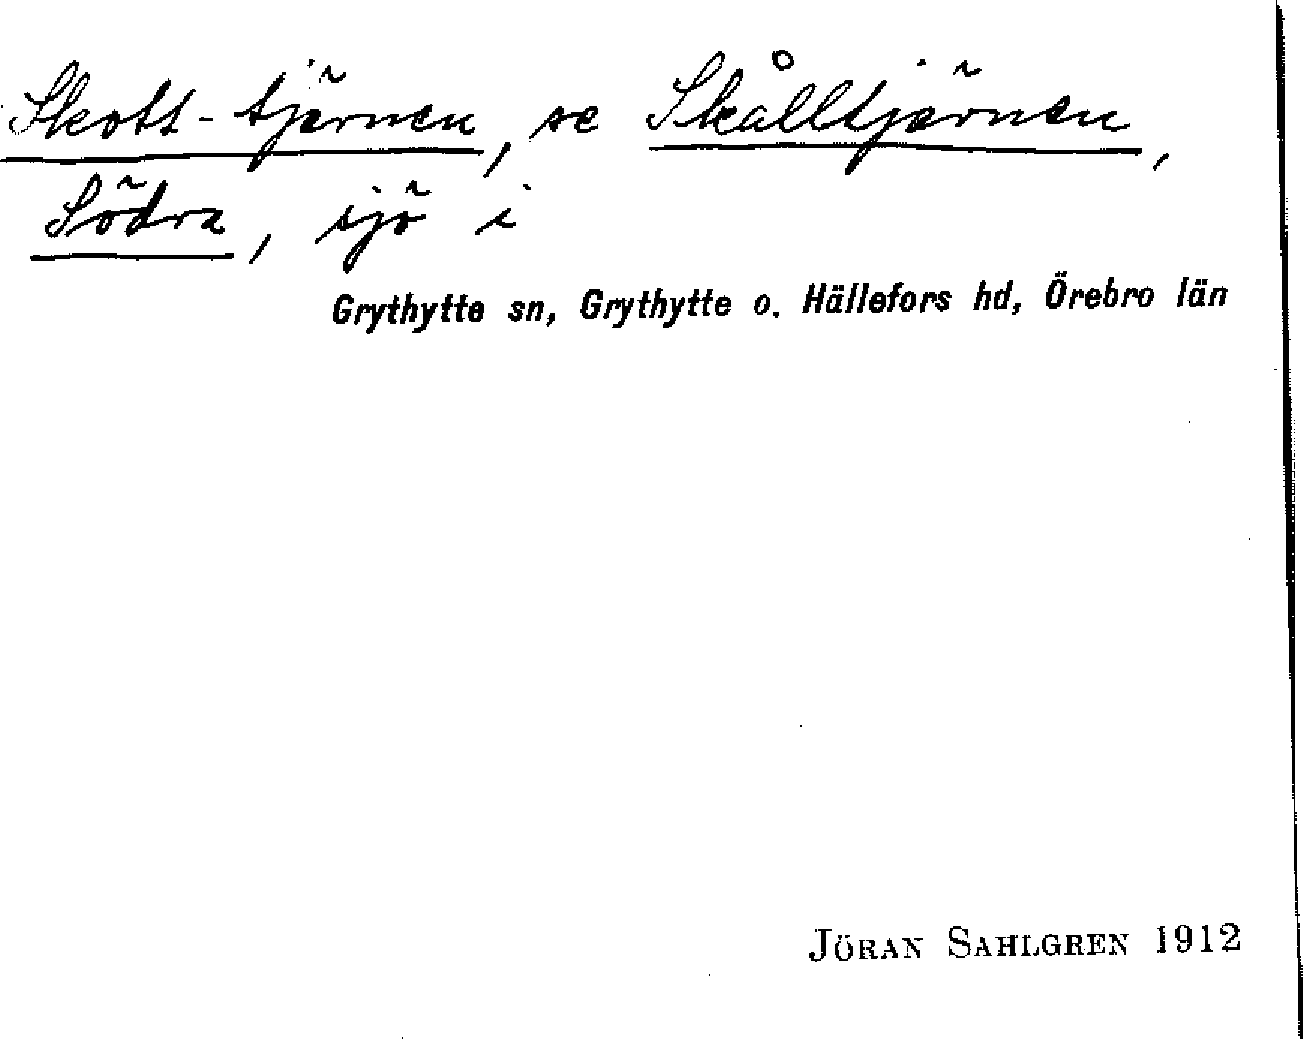 Skott-tjärnen, se Skålltjärnen,
Södra, sjö i
Grythytte sn, Grythytte o. Hällefors hd, Örebro län
JÖRAN SAHLGREN 1912